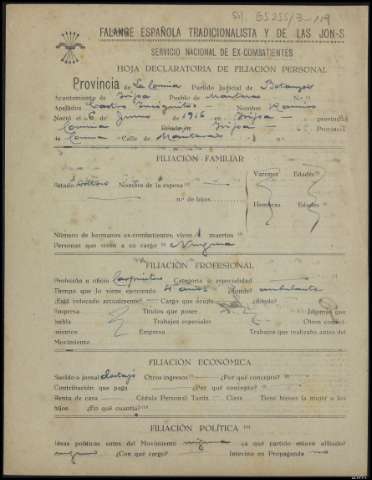 FALANGE ESPAÑOLA TRADICIONALISTA Y DE LAS JON-S
SERVICIO NACIONAL DE EX-COMBATIENTES
HOJA DECLARATORIA DE FILIACIÓN PERSONAL
Provincia de La Coruña Partido Judicial de Betanzos
Ayuntamiento de Irijoa Pueblo de
Apellidos Castro Nombre Ramiro
Nació el 6 de Junio de 1916 en Irijoa provincia
Coruña Irijoa Provincia
de Coruña Calle de
FILIACIÓN FAMILIAR
Varones Edades
Estado Soltero Nombre de la esposa
n.º de hijos
Hembras Edades
Número de hermanos ex-combatientes vivos muertos
Personas que viven a su cargo Ninguna
FILIACIÓN PROFESIONAL
Profesión u oficio Carpintero Categoría o especialidad
Tiempo que lo viene ejerciendo 4 años ¿dónde? ambulante
¿Está colocado actualmente? Cargo que ocupa ¿dónde?
Empresa Títulos que posee Idiomas que
habla Trabajos especiales Otros conoci-
mientos Empresa Trabajos que realizaba antes del
Movimiento
FILIACIÓN ECONÓMICA
Sueldo o jornal Otros ingresos ¿Por qué concepto?
Contribución que paga ¿Por qué concepto?
Renta de casa Cédula Personal Tarifa Clase Tiene bienes la mujer o los
hijos ¿En qué cuantía?
FILIACIÓN POLÍTICA
Ideas políticas antes del Movimiento ninguna en qué partido estuvo afiliado
ninguno ¿Con qué cargo? Intervino en Propaganda no